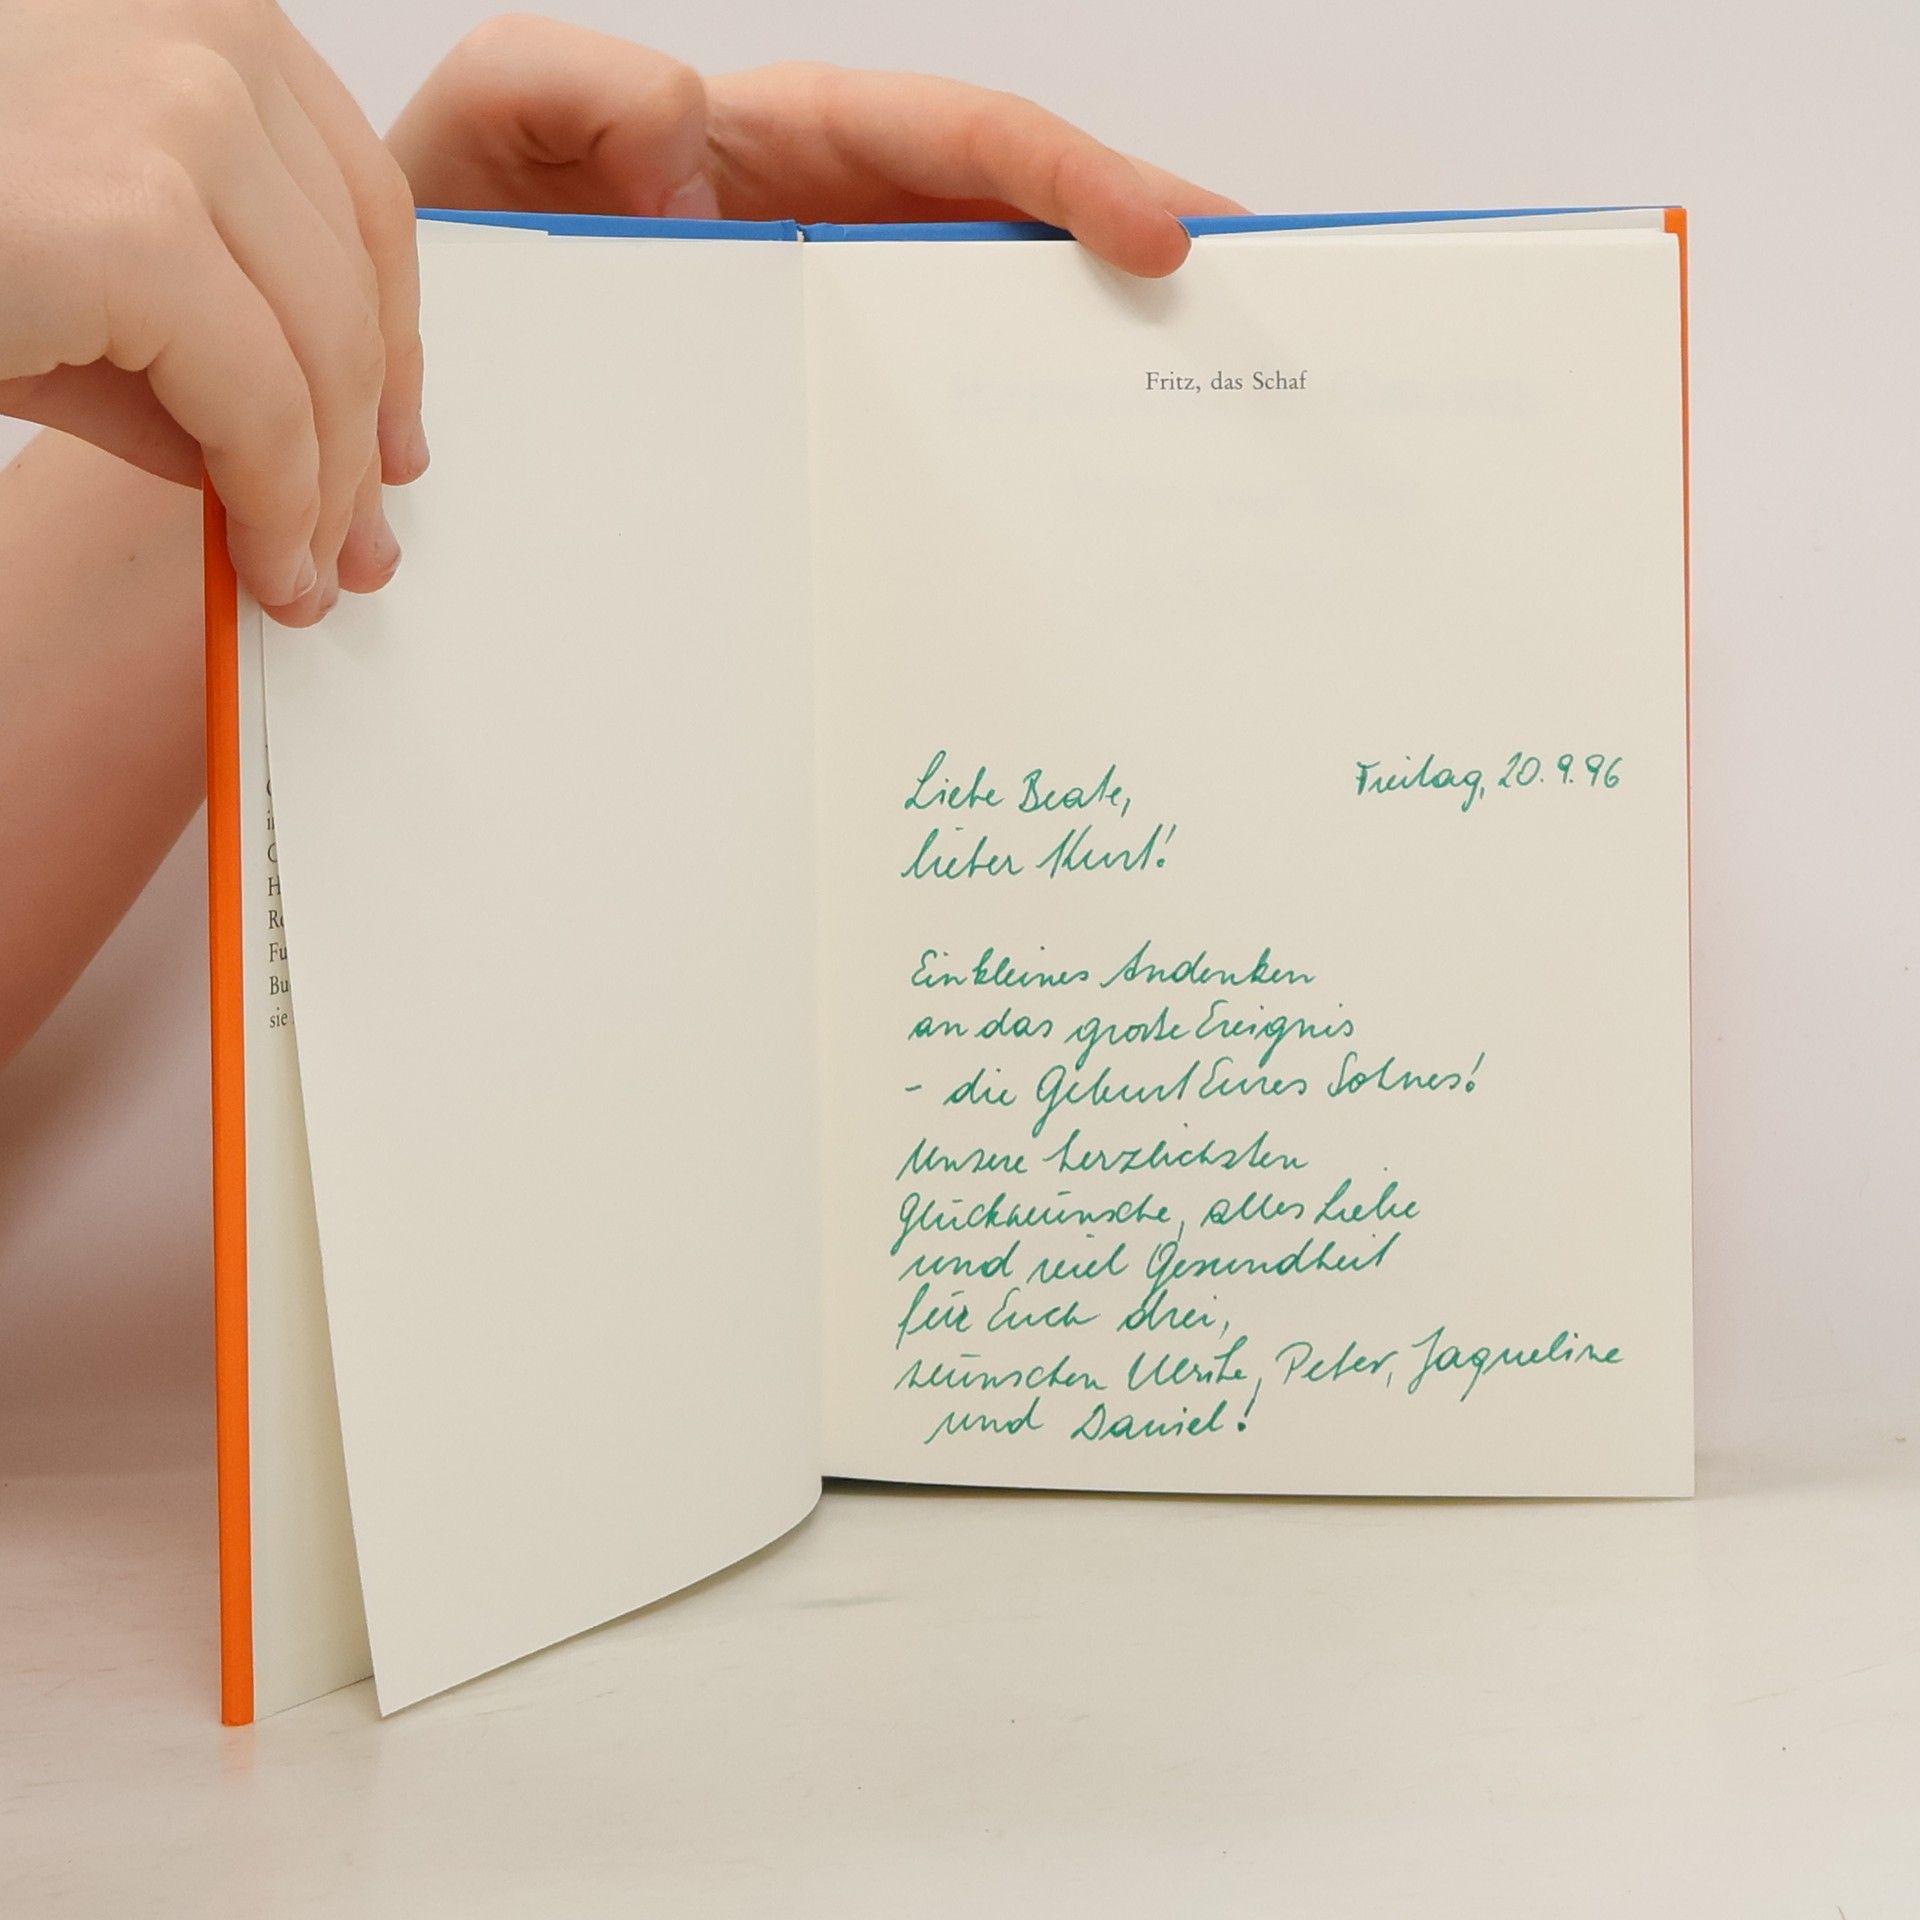 Fritz, das Schaf
Liebe Beate,
Freitag, 20.9.96
lieber Kurt!
Ein kleines Andenken
an das große Ereignis
- die Geburt Eures Sohnes!
Unsere herzlichsten
Glückwünsche, alles Liebe
und viel Gesundheit
für Euch drei,
wünschen Ulrike, Peter, Jaqueline
und Daniel!
H
Fu
Bu
sie